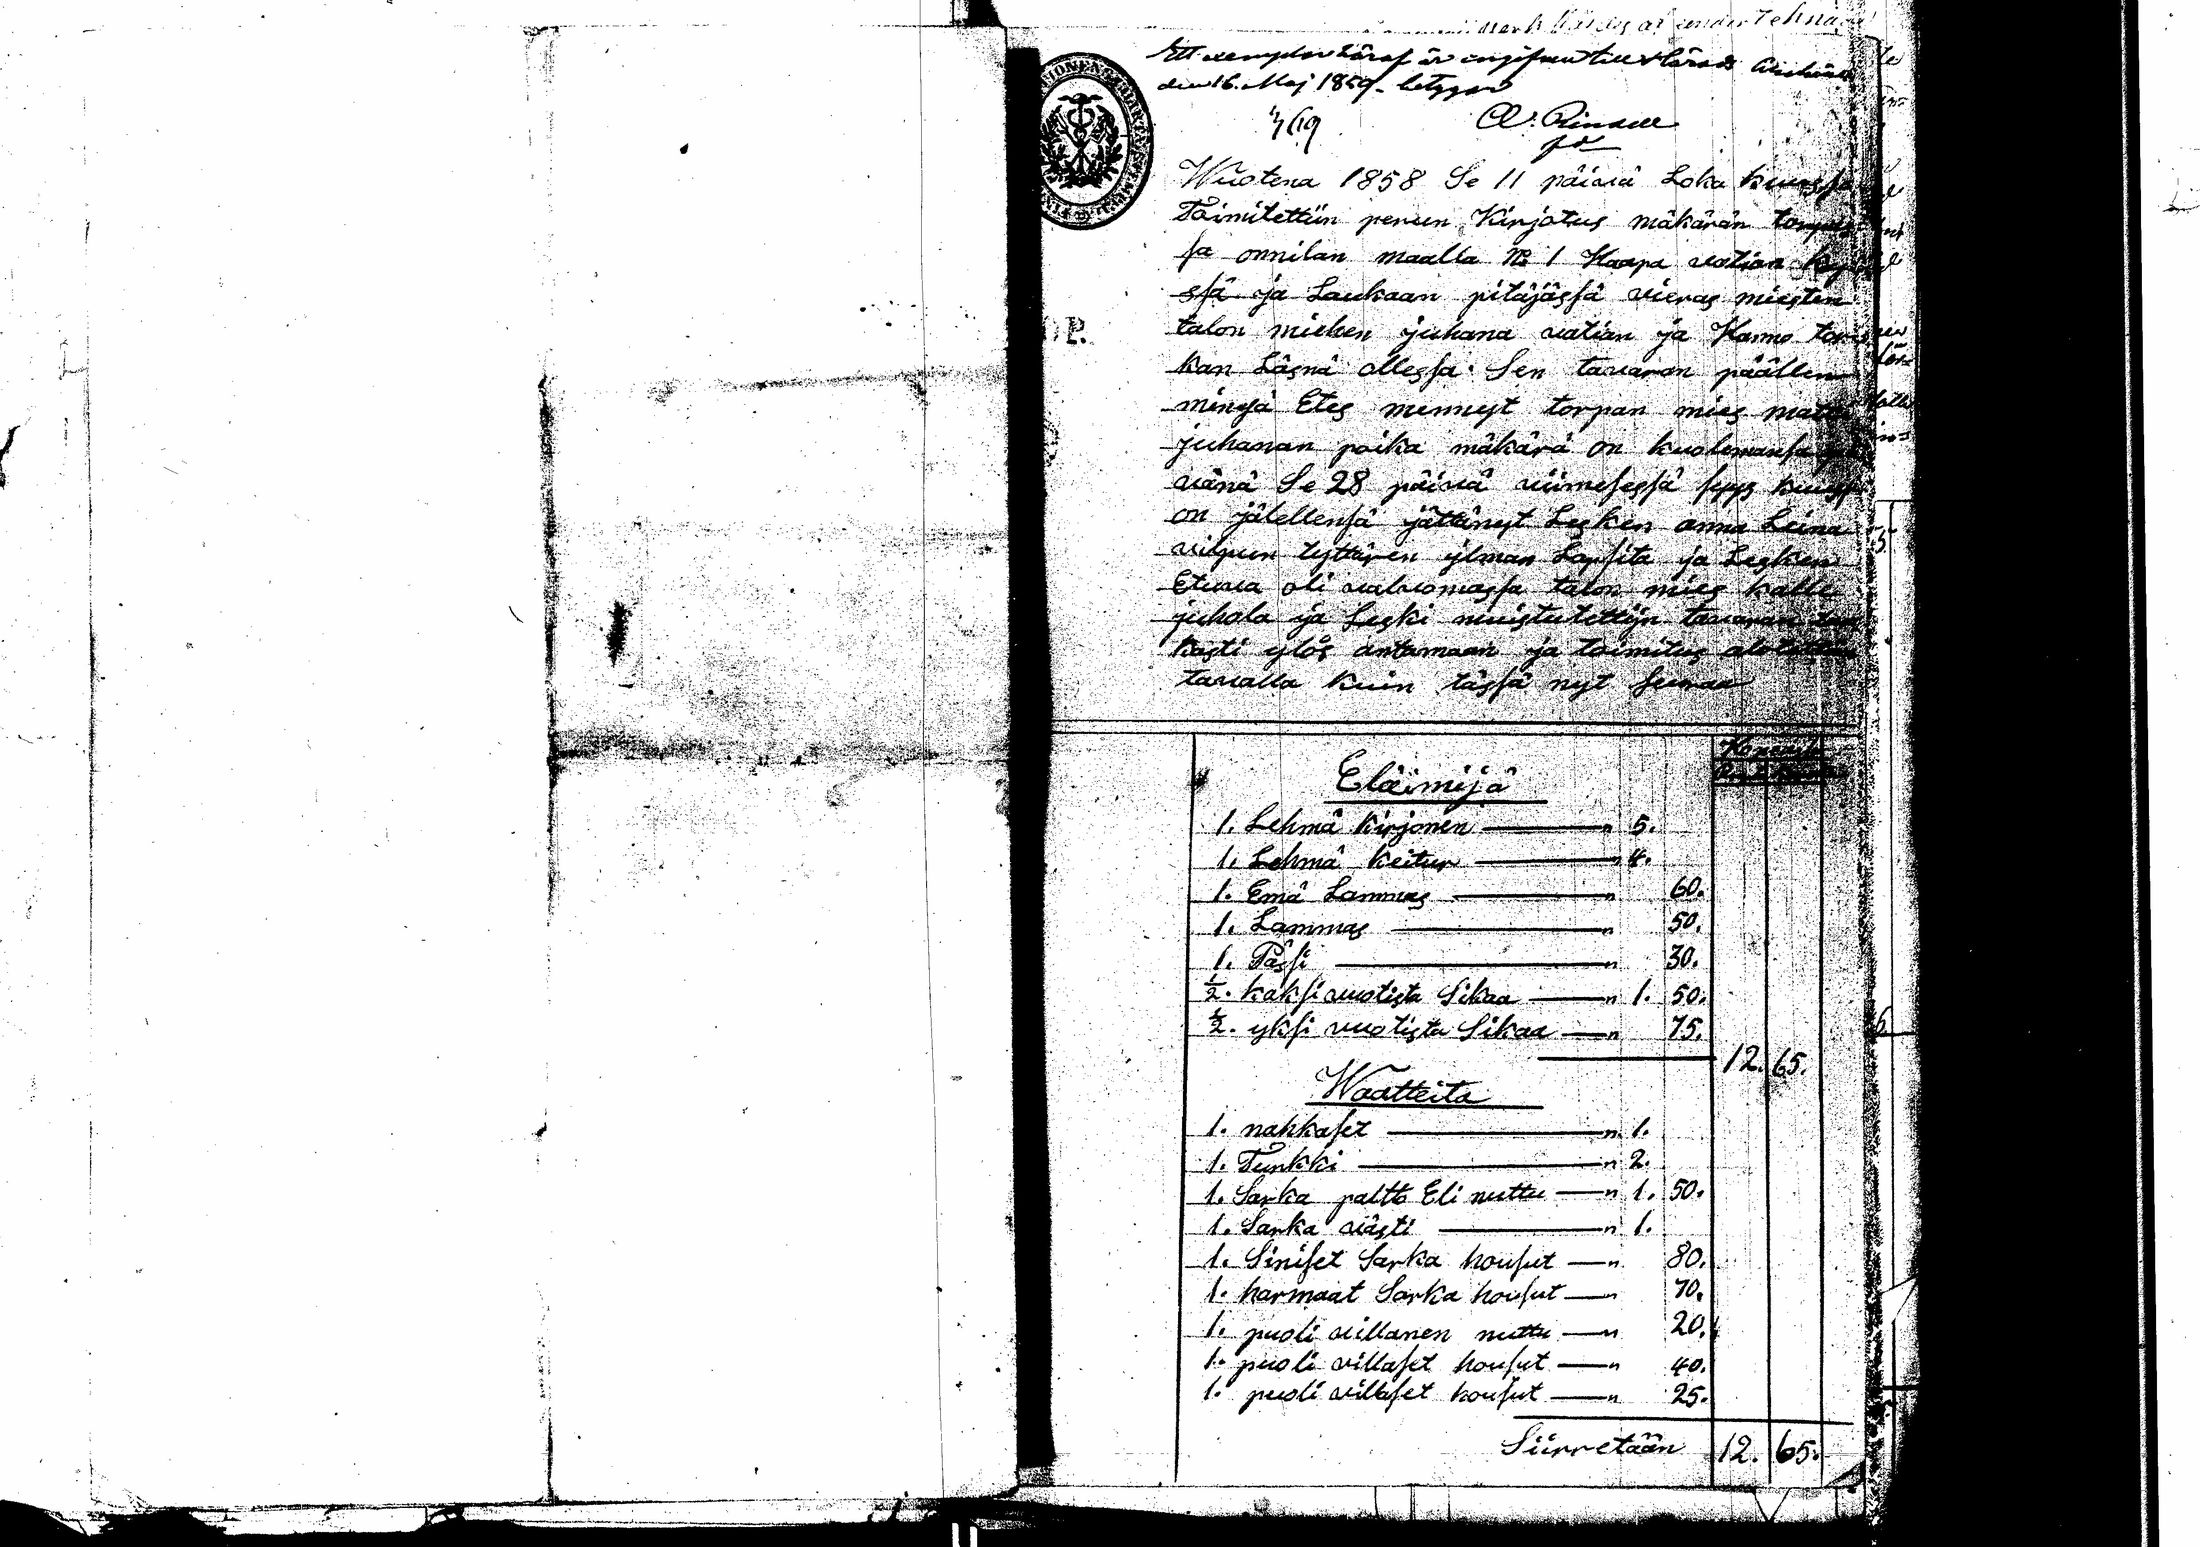 Ett exemplar häraf är ingifvet till Härads
den 16. Maj 1859. betygar
Wuotena 1858 Se 11 päivä Loka kuussa
Toimitettiin perun Kirjotus mäkärän torpas
sa onnilan maalla No 1 Haapa vatian
ssä ja Laukaan pitäjässä vieras miesten
talon miehen juhana vatian ja Hannu
kan Läsnä ollessa. Sen tavaran päällen
minkä Etes mennyt torpan mies matti
juhanan poika mäkärä on kuolemansa
vänä Se 28 päivä viimesessä syys kuussa
on jälellensä jättänyt Lesken anna Leina
vilpun tyttären ilman Lapsita ja Lesken
Etuva oli valvomassa talon mies kalle
juhola ja Leski muistutettijn tavaran
kasti ylös antamaan ja toimitus
tavalla kuin tässä nyt seuraa
Eläimijä
1. Lehmä Kirjonen — " 5.
1. Lehmä Keitur — " 4.
1. Emä Lammas — " 60.
1. Lammas — " 50.
1. Pässi — " 30.
1/2. kaksi vuotista Sikaa — " 1. 50.
1/2. yksi vuotista Sikaa — " 75.
12. 65.
Waatteita
1. nahkaset — " 1.
1. Turkki — " 2.
1. Sarka paltto Eli nuttu — " 1. 50.
1. Sarka västi — " 1.
1. Siniset Sarka housut — " 80.
1. harmaat Sarka housut — " 70.
1. puoli villanen nuttu — " 20.
1. puoli villaset housut — " 40.
1. puoli villaset housut — " 25.
Siirretään 12. 65.